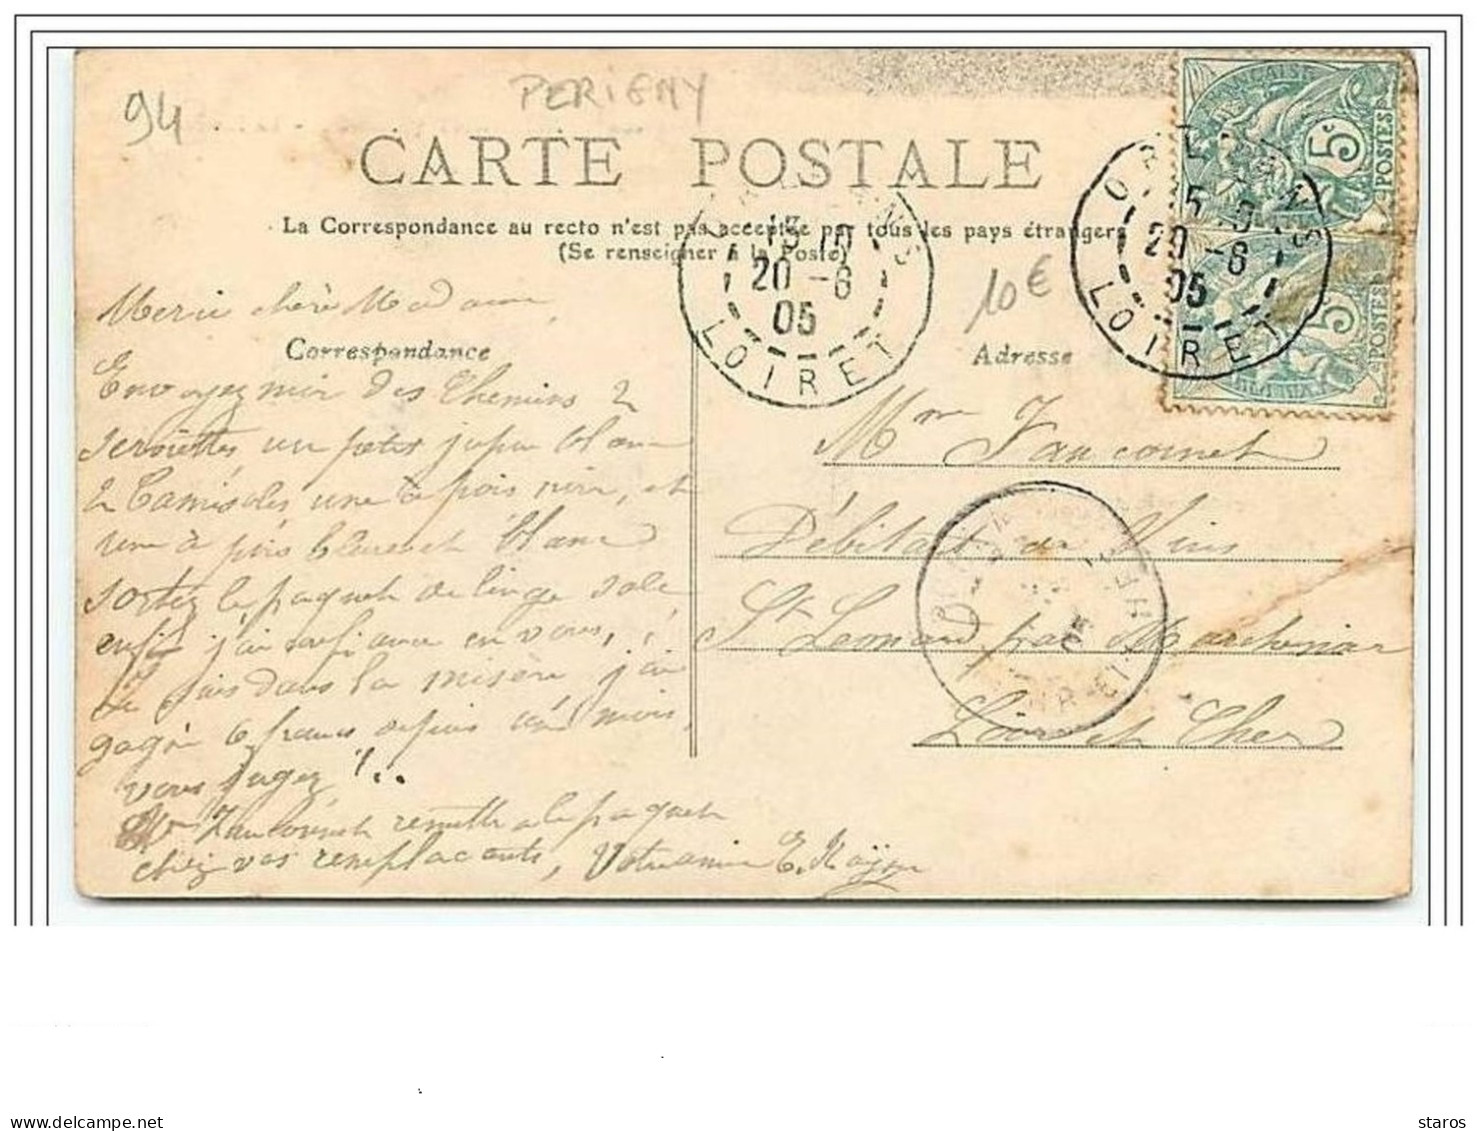 94
PERIGNY
CARTE POSTALE
La Correspondance au recto n'est pas acceptée par tous les pays étrangers
(Se renseigner à la Poste)
10€
FRANÇAISE
5c
POSTES
5
POSTES
ORLEANS
15
20 -6
05
LOIRET
15 10
20 -6
05
LOIRET
Merci chère Madame
Correspondance
Envoyez moi des Chemins 2
serviettes un petit jupon blanc
2 Camisoles une à pois noir, et
une à pois bleu et blanc
sortez le paquet de linge sale
enfin j'ai confiance en vous,
je suis dans la misère j'ai
gagné 6 francs depuis un mois,
vous jugez !..
Mme Fauconnet remettra le paquet
chez vos remplacants, Votre amie E.
Adresse
Mme Fauconnet
Débitant de Vins
St Léonard par Marchenoir
Loir et Cher
05
LOIR-ET-CHER
staros